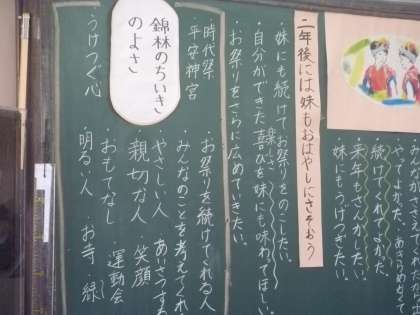 続けてくれてよかた。
・来年もさんかしたい。
・妹にもうけつぎたい。
二年後には妹もおはやしにさそおう
・妹にも続けてお祭りをのこしたい。
・自分ができた喜びを妹にも味わてほしい。
楽しさ
お祭りをさらに広めていきたい。
錦林のちいきのよさ
・時代祭
・平安神宮
・うけつぐ心
・お祭りを続けてくれる人
・みんなのことを考えてくれ
・やさしい人
・あいさつする
・親切な人
・笑顔
・おもてなし
・運動会
・明るい人
・お寺
・緑